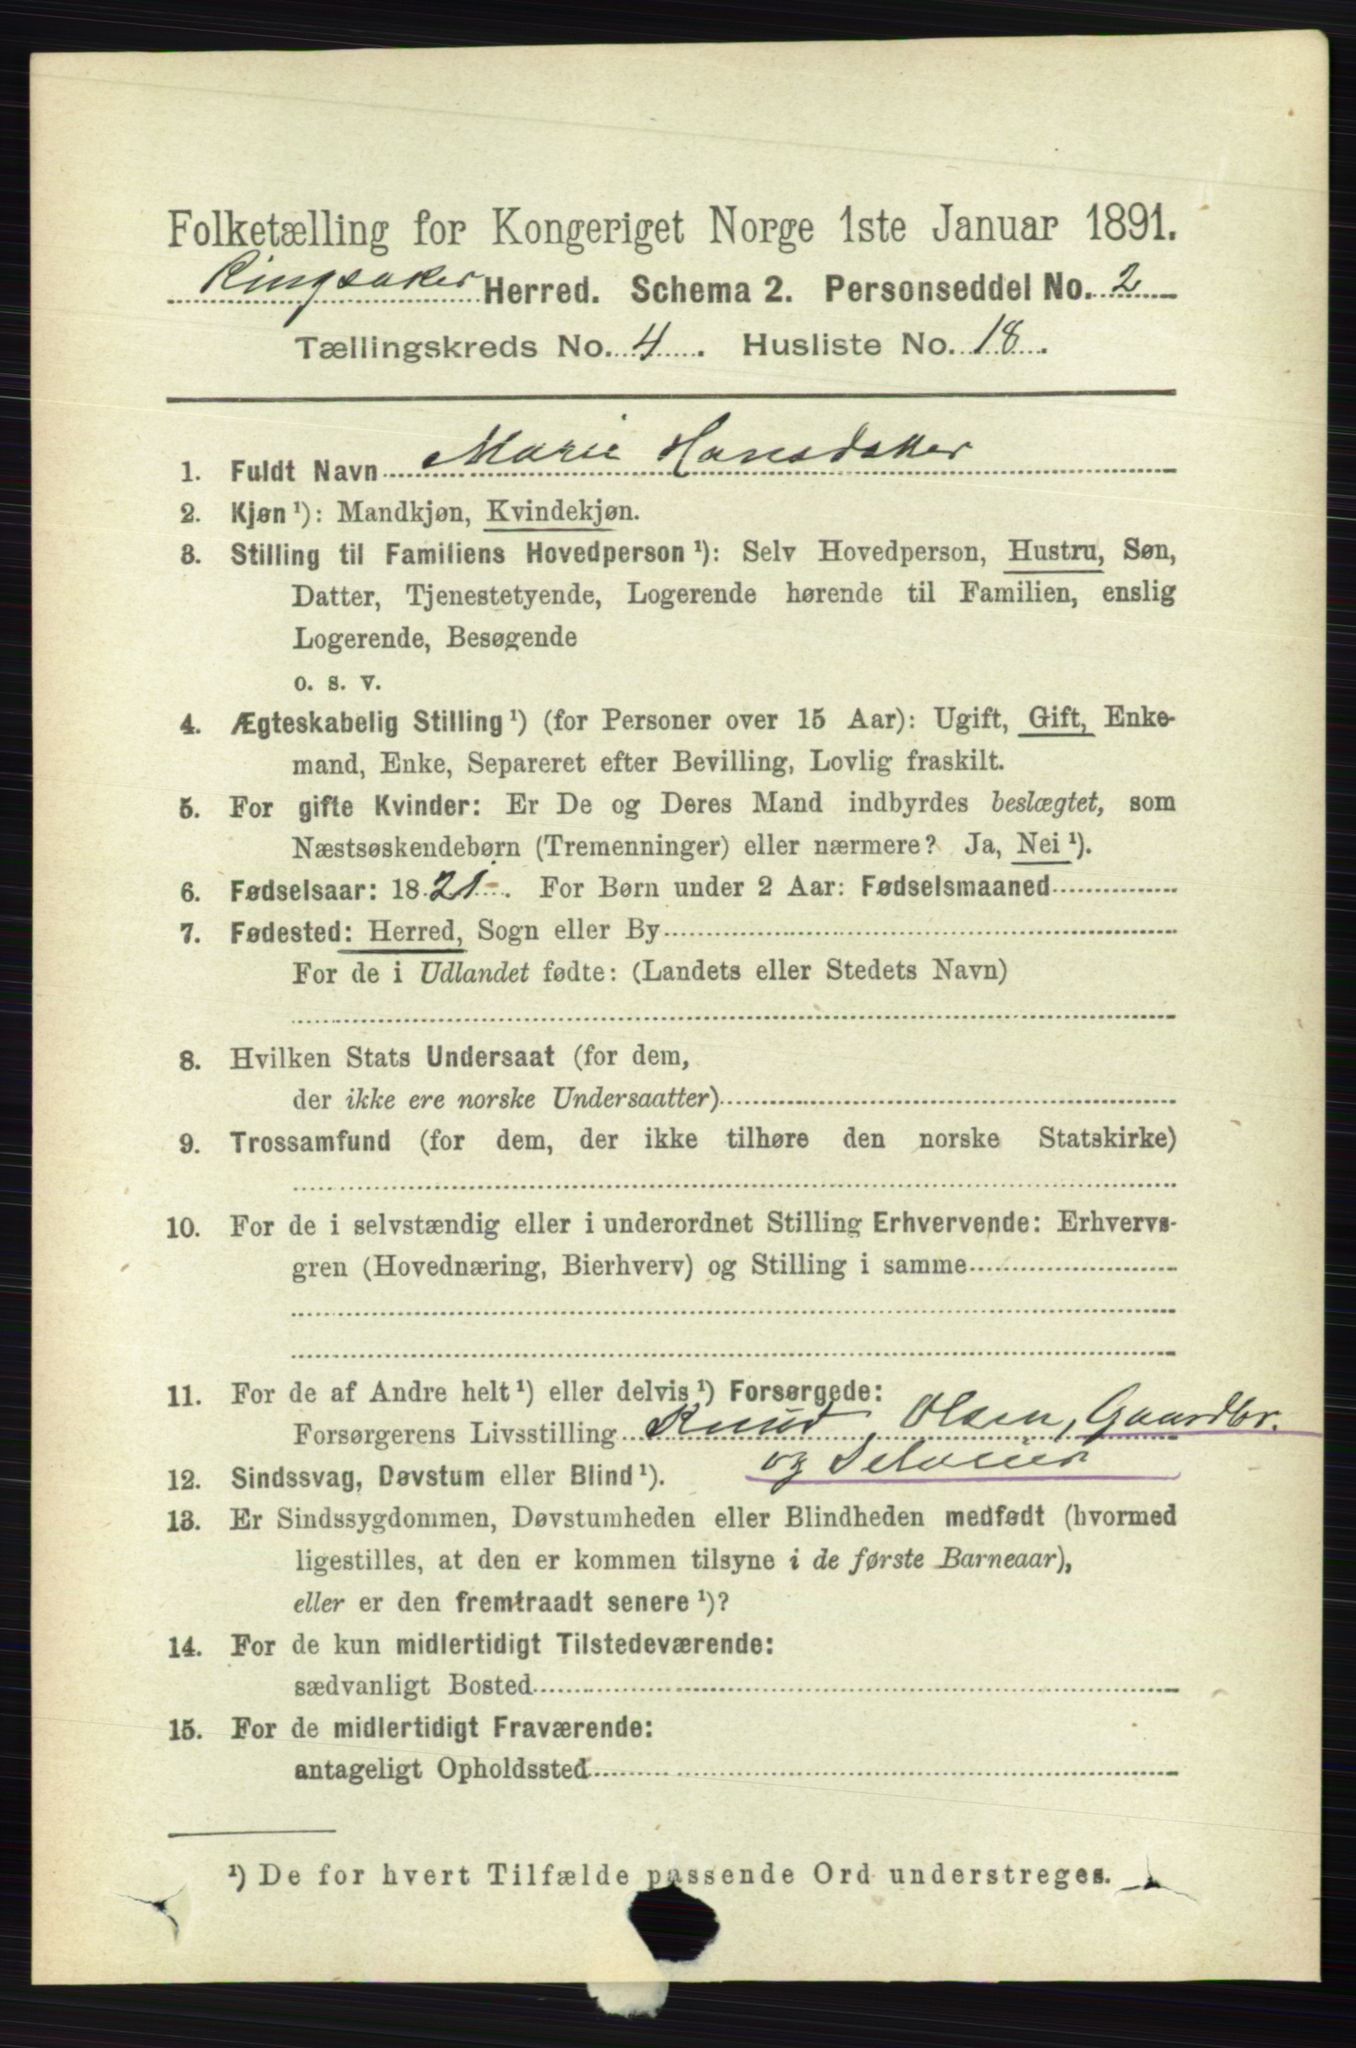 Folketælling for Kongeriget Norge 1ste Januar 1891.
Ringsaker Herred. Schema 2. Personseddel No. 2
Tællingskreds No. 4. Husliste No. 18.
1. Fuldt Navn Marie Hansdatter
2. Kjøn ¹): Mandkjøn, Kvindekjøn.
3. Stilling til Familiens Hovedperson ¹): Selv Hovedperson, Hustru, Søn,
Datter, Tjenestetyende, Logerende hørende til Familien, enslig
Logerende, Besøgende
o. s. v.
4. Ægteskabelig Stilling ¹) (for Personer over 15 Aar): Ugift, Gift, Enke-
mand, Enke, Separeret efter Bevilling, Lovlig fraskilt.
5. For gifte Kvinder: Er De og Deres Mand indbyrdes beslægtet, som
Næstsøskendebørn (Tremenninger) eller nærmere? Ja, Nei ¹).
6. Fødselsaar: 1821. For Børn under 2 Aar: Fødselsmaaned
7. Fødested: Herred, Sogn eller By
For de i Udlandet fødte: (Landets eller Stedets Navn)
8. Hvilken Stats Undersaat (for dem,
der ikke ere norske Undersaatter)
9. Trossamfund (for dem, der ikke tilhøre den norske Statskirke)
10. For de i selvstændig eller i underordnet Stilling Erhvervende: Erhvervs-
gren (Hovednæring, Bierhverv) og Stilling i samme
11. For de af Andre helt ¹) eller delvis ¹) Forsørgede:
Forsørgerens Livsstilling Knud Olsen, Gaardbr.
og Seleier
12. Sindssvag, Døvstum eller Blind ¹).
13. Er Sindssygdommen, Døvstumheden eller Blindheden medfødt (hvormed
ligestilles, at den er kommen tilsyne i de første Barneaar),
eller er den fremtraadt senere ¹)?
14. For de kun midlertidigt Tilstedeværende:
sædvanligt Bosted
15. For de midlertidigt Fraværende:
antageligt Opholdssted
¹) De for hvert Tilfælde passende Ord understreges.